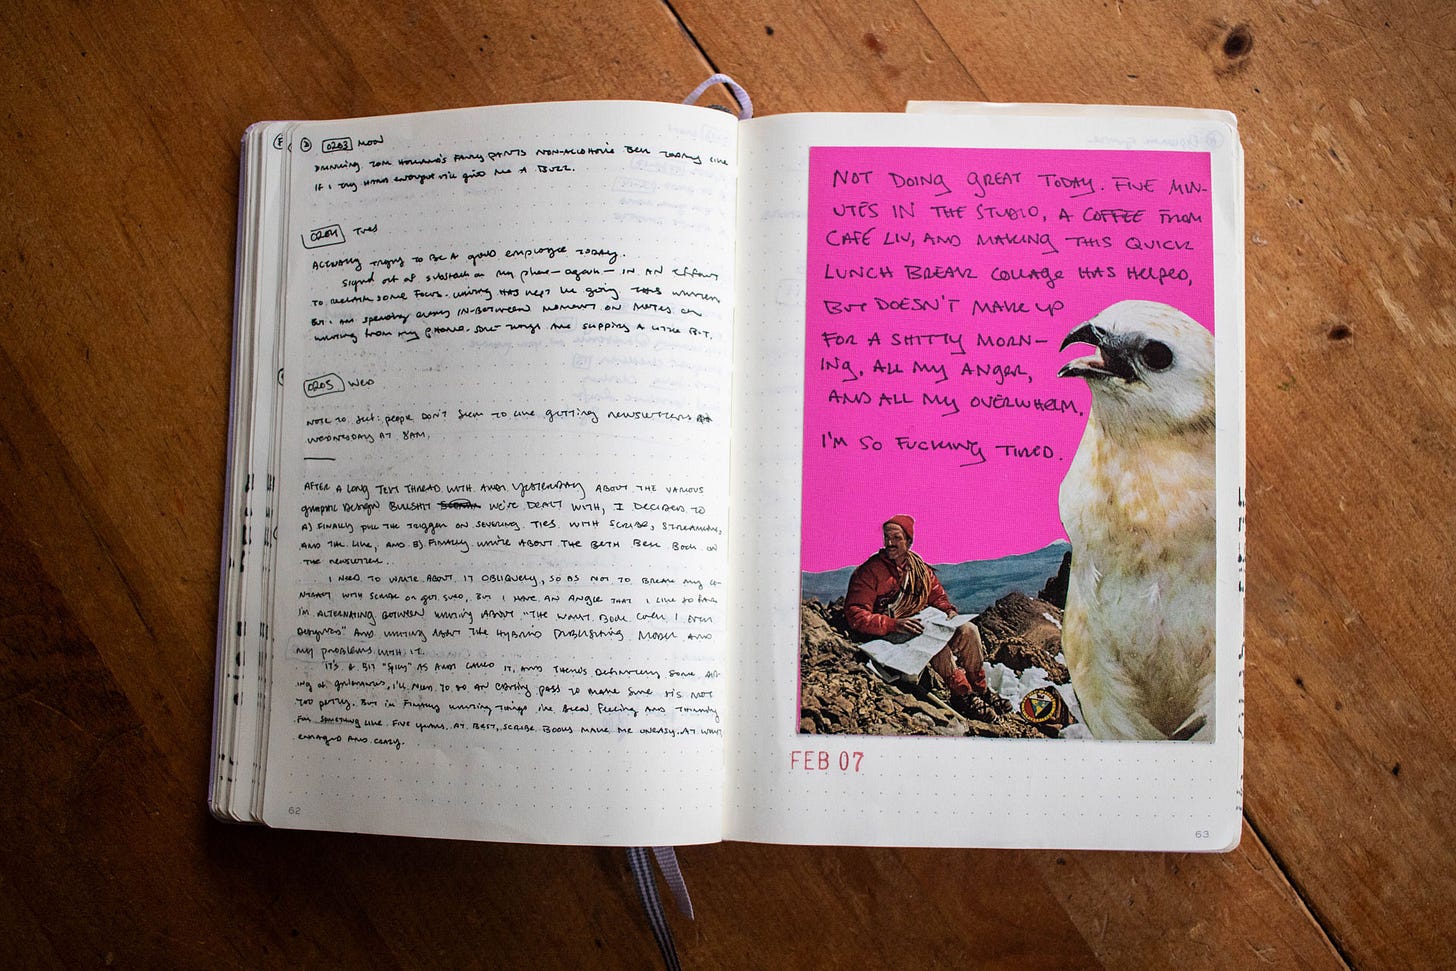 2 0203 MON
DRINKING TOM HOLLAND'S FANCY PANTS NON-ALCOHOLIC BEER TODAY LIKE
IF I TRY HARD ENOUGH IT'LL GIVE ME A BUZZ.
0204 TUES
ACTUALLY TRYING TO BE A GOOD EMPLOYEE TODAY.
SIGNED OUT OF SUBSTACK ON MY PHONE - AGAIN - IN AN EFFORT
TO RECLAIM SOME FOCUS. WRITING HAS KEPT ME GOING THIS WINTER
BUT I AM SPENDING EVERY IN-BETWEEN MOMENT ON NOTES OR
WRITING FROM MY PHONE. SOME THINGS ARE SLIPPING A LITTLE BIT.
0205 WED
NOTE TO SELF: PEOPLE DON'T SEEM TO LIKE GETTING NEWSLETTERS
WEDNESDAY AT 8AM.
AFTER A LONG TEXT THREAD WITH ANDI YESTERDAY ABOUT THE VARIOUS
GRAPHIC DESIGN BULLSHIT WE'VE DEALT WITH, I DECIDED TO
A) FINALLY PULL THE TRIGGER ON SEVERING TIES WITH SCRIBE, STREAMLINE,
AND THE LIKE, AND B) FINALLY WRITE ABOUT THE BETH BELL BOOK ON
THE NEWSLETTER.
I NEED TO WRITE ABOUT IT OBLIQUELY, SO AS NOT TO BREAK MY CO-
NTRACT WITH SCRIBE OR GET SUED, BUT I HAVE AN ANGLE THAT I LIKE SO FAR.
I'M ALTERNATING BETWEEN WRITING ABOUT "THE WORST BOOK COVER I EVER
DESIGNED" AND WRITING ABOUT THE HYBRID PUBLISHING MODEL AND
MY PROBLEMS WITH IT.
IT'S A BIT "SPICY" AS ANDI CALLED IT, AND THERE'S DEFINITELY SOME AIR-
ING OF GRIEVANCES. I'LL NEED TO DO AN EDITING PASS TO MAKE SURE IT'S NOT
TOO PETTY. BUT I'M FINALLY WRITING THINGS I'VE BEEN FEELING AND THINKING
FOR SOMETHING LIKE FIVE YEARS. AT BEST, SCRIBE BOOKS MAKE ME UNEASY. AT WORST,
ENRAGED AND CRAZY.
62
NOT DOING GREAT TODAY. FIVE MIN-
UTES IN THE STUDIO, A COFFEE FROM
CAFÉ LIV, AND MAKING THIS QUICK
LUNCH BREAK COLLAGE HAS HELPED,
BUT DOESN'T MAKE UP
FOR A SHITTY MORN-
ING, ALL MY ANGER,
AND ALL MY OVERWHELM.
I'M SO FUCKING TIRED.
FEB 07
63